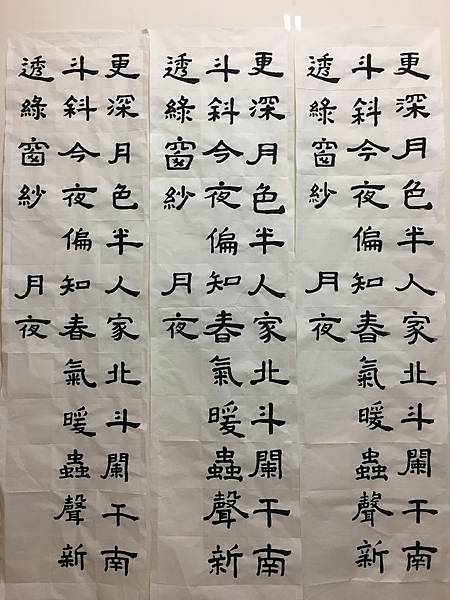 更深月色半人家北斗闌干南
斗斜今夜偏知春氣暖蟲聲新
透綠窗紗 月夜
更深月色半人家北斗闌干南
斗斜今夜偏知春氣暖蟲聲新
透綠窗紗 月夜
更深月色半人家北斗闌干南
斗斜今夜偏知春氣暖蟲聲新
透綠窗紗 月夜